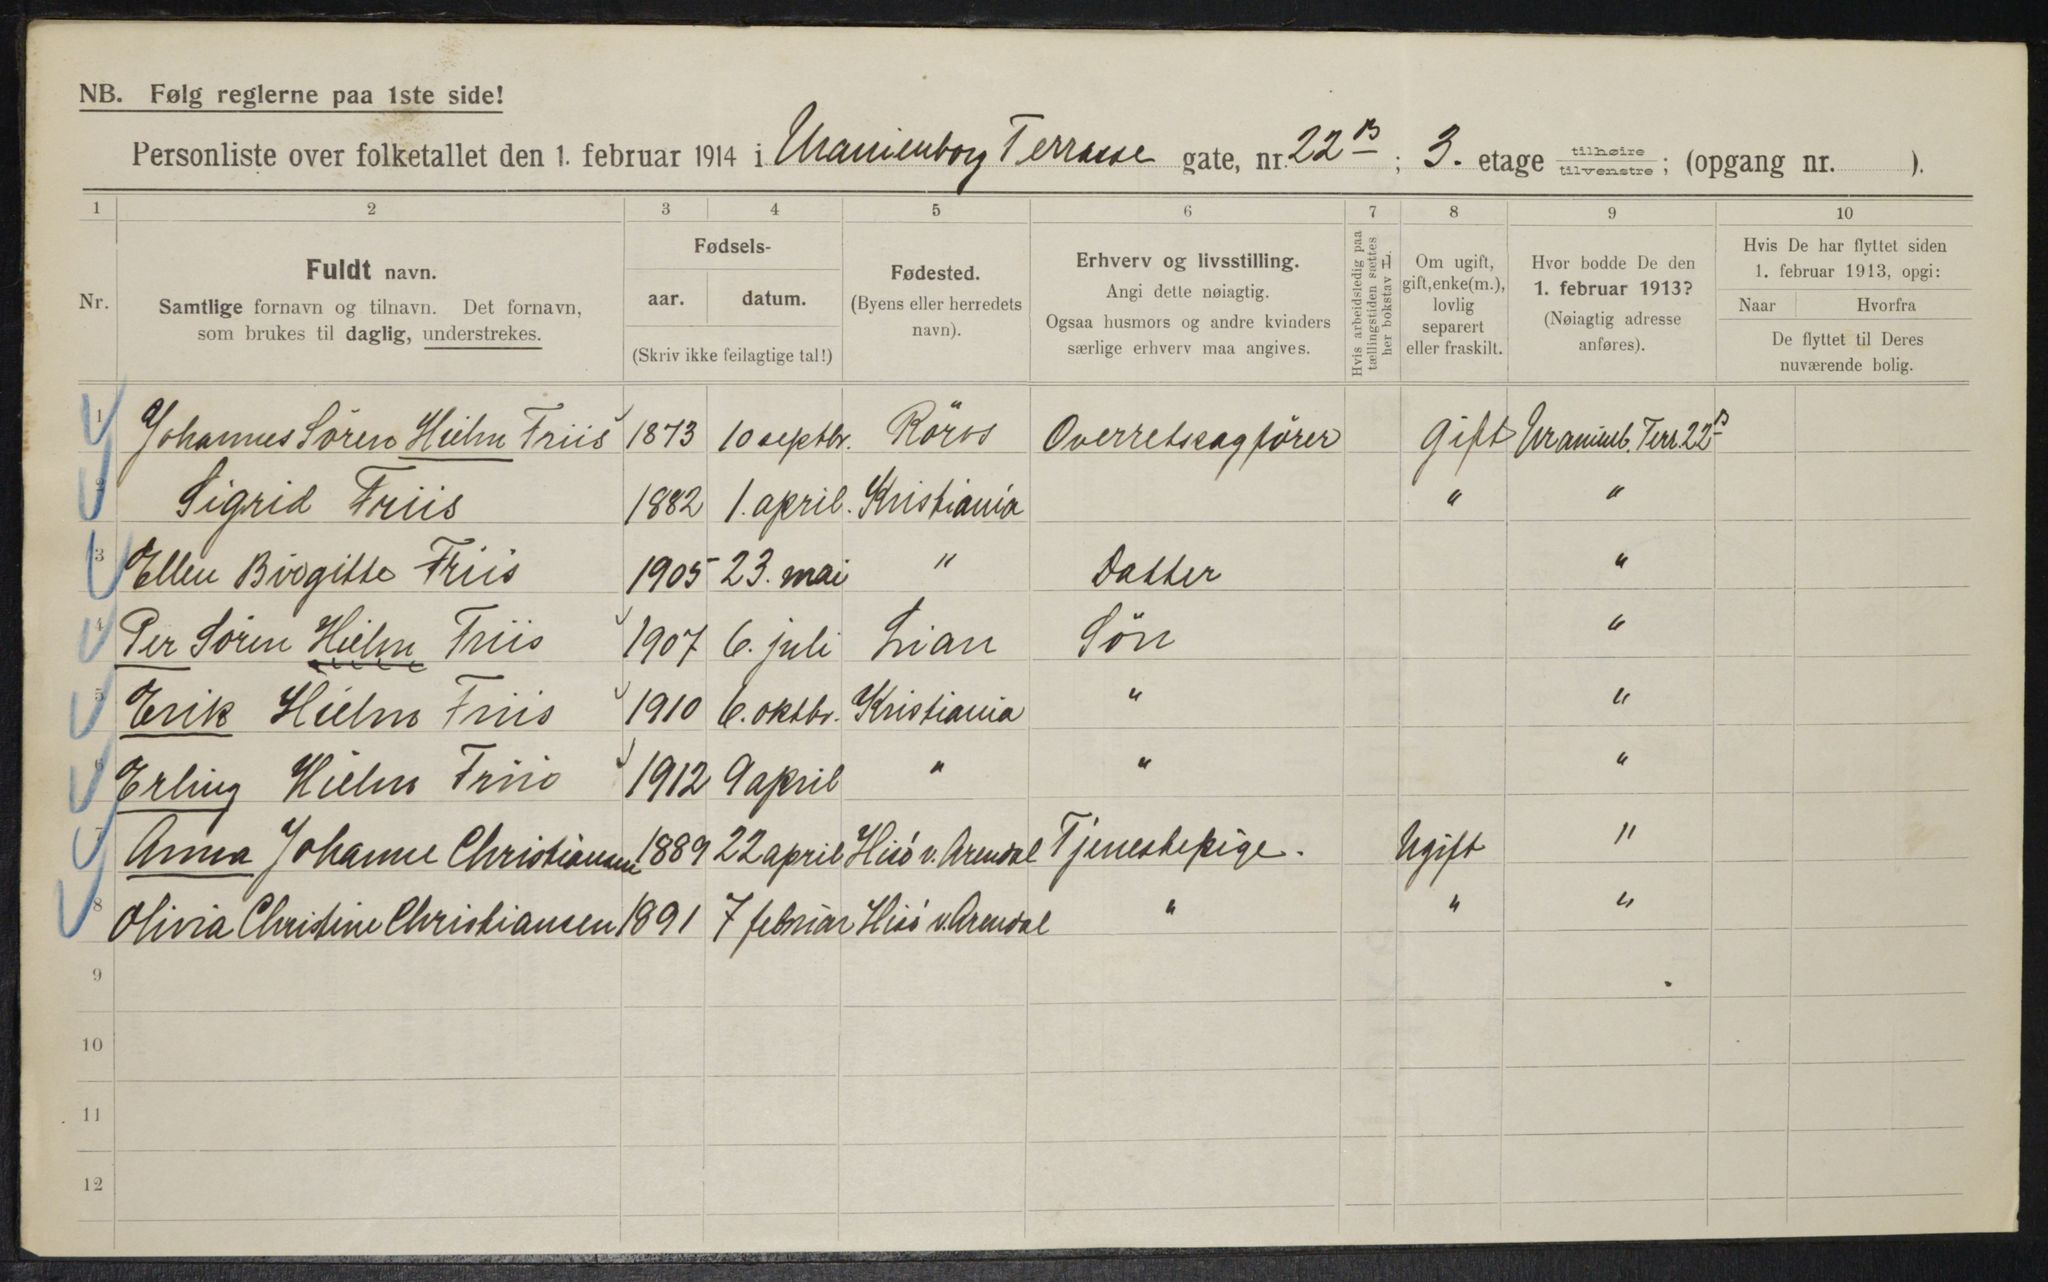 NB. Følg reglerne paa 1ste side!
Personliste over folketallet den 1. februar 1914 i Uranienborg Terrasse gate, nr. 22 B ; 3. etage tilhøire tilvenstre ; (opgang nr. ).
1 2 3 4 5 6 7 8 9 10
Nr.
Fuldt navn.
Samtlige fornavn og tilnavn. Det fornavn,
som brukes til daglig, understrekes.
Fødsels-
aar. datum.
(Skriv ikke feilagtige tal!)
Fødested.
(Byens eller herredets
navn).
Erhverv og livsstilling.
Angi dette nøiagtig.
Ogsaa husmors og andre kvinders
særlige erhverv maa angives.
Hvis arbeidsledig paa
tællingstiden sættes
her bokstav L.
Om ugift,
gift, enke(m.),
lovlig
separert
eller fraskilt.
Hvor bodde De den
1. februar 1913?
(Nøiagtig adresse
anføres).
Hvis De har flyttet siden
1. februar 1913, opgi:
Naar Hvorfra
De flyttet til Deres
nuværende bolig.
1 Johannes Sören Hielm Friis 1873 10 septbr. Röros Overretssagförer Gift Uranienb. Terr. 22 B
2 Sigrid Friis 1882 1. april. Kristiania " "
3 Ellen Birgitte Friis 1905 23. mai " Datter "
4 Per Sören Hielm Friis 1907 6. juli Lian Sön "
5 Erik Hielm Friis 1910 6. oktbr. Kristiania " "
6 Erling Hielm Friis 1912 9 april " " "
7 Anna Johanne Christiansen 1889 22 april Hisö v. Arendal Tjenestepige. Ugift "
8 Olivia Christine Christiansen 1891 7 februar Hisö v. Arendal " " "
9
10
11
12